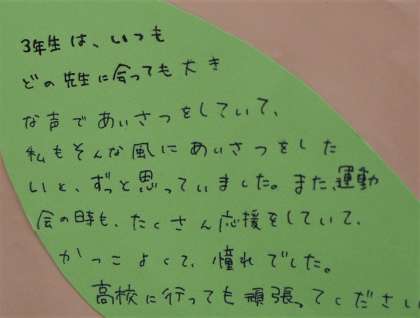 3年生は、いつも
どの先生に会っても大き
な声であいさつをしていて、
私もそんな風にあいさつをした
いと、ずっと思っていました。また、運動
会の時も、たくさん応援をしていて、
かっこよくて、憧れでした。
高校に行っても頑張ってください